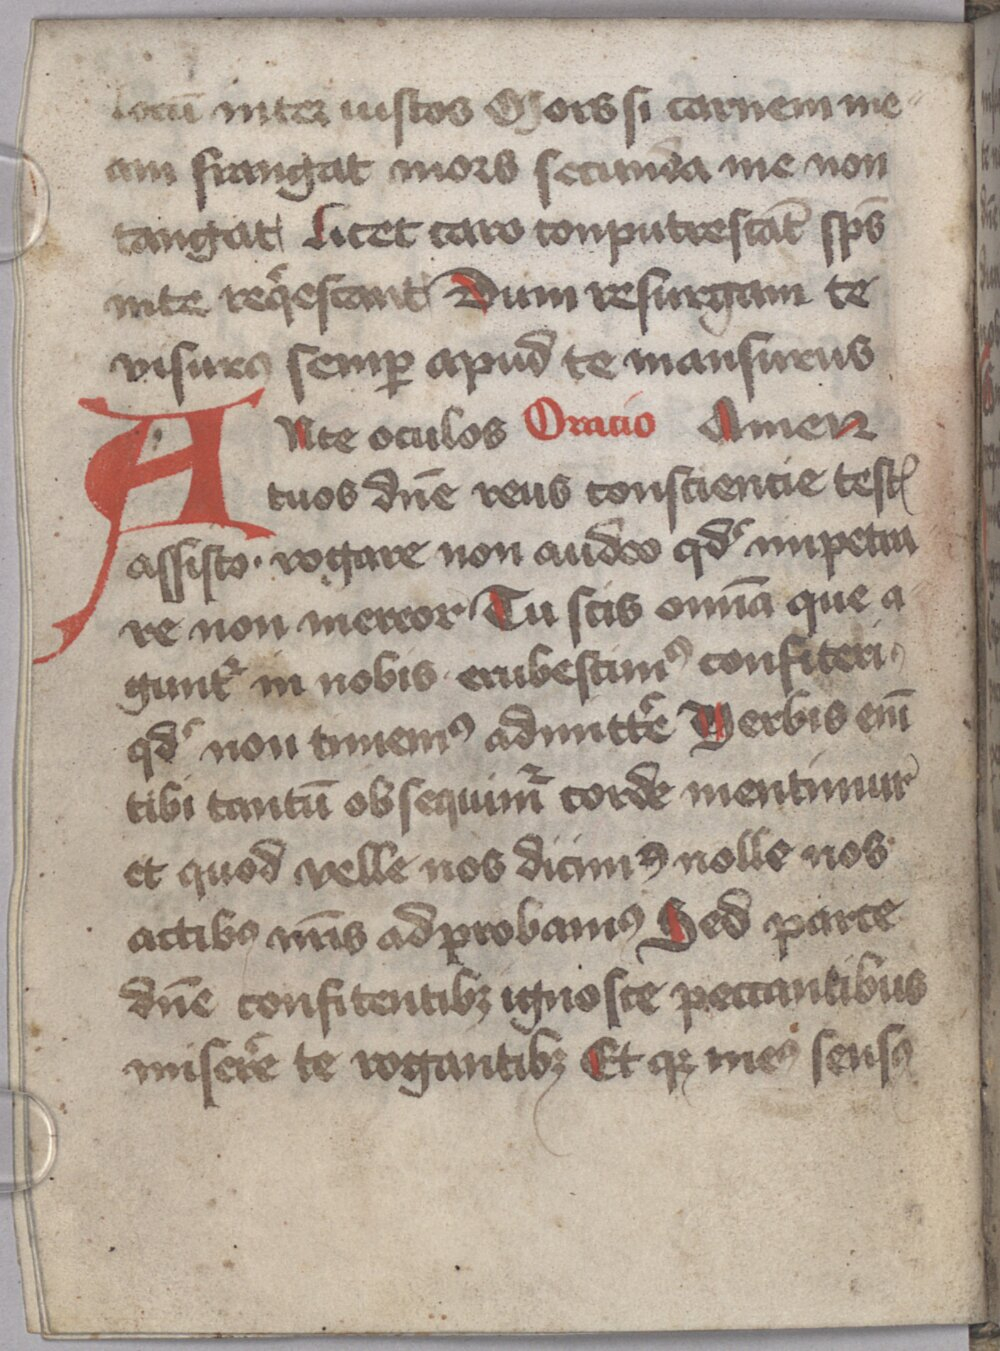 locū inter iustos Mors si carnem me
am frangat mors secunda me non
tangat Licet caro conputrescāt sp̄s
in te reqͥescant Dum resurgam te
visurꝰ semꝑ apud te mansurus
Ante oculos Oracio Amen
tuos dn̄e reus consciencie testꝭ
assisto · rogare non audeo qd̛ inpetra
re non mereor Tu scis omīa que a
gunt᷑ in nobis erubescimꝰ confiteri
qd̛ non timemꝰ admitte᷑ Verbis em̄
tibi tantū obsequim᷑ corde mentimur
et quod velle nos dicimꝰ nolle nos
actibꝰ nr̄is adprobamꝰ Sed parce
dn̄e confitentibꝫ ignosce peccantibus
misere᷑ te rogantibꝫ Et qꝫ meꝰ sensꝰ